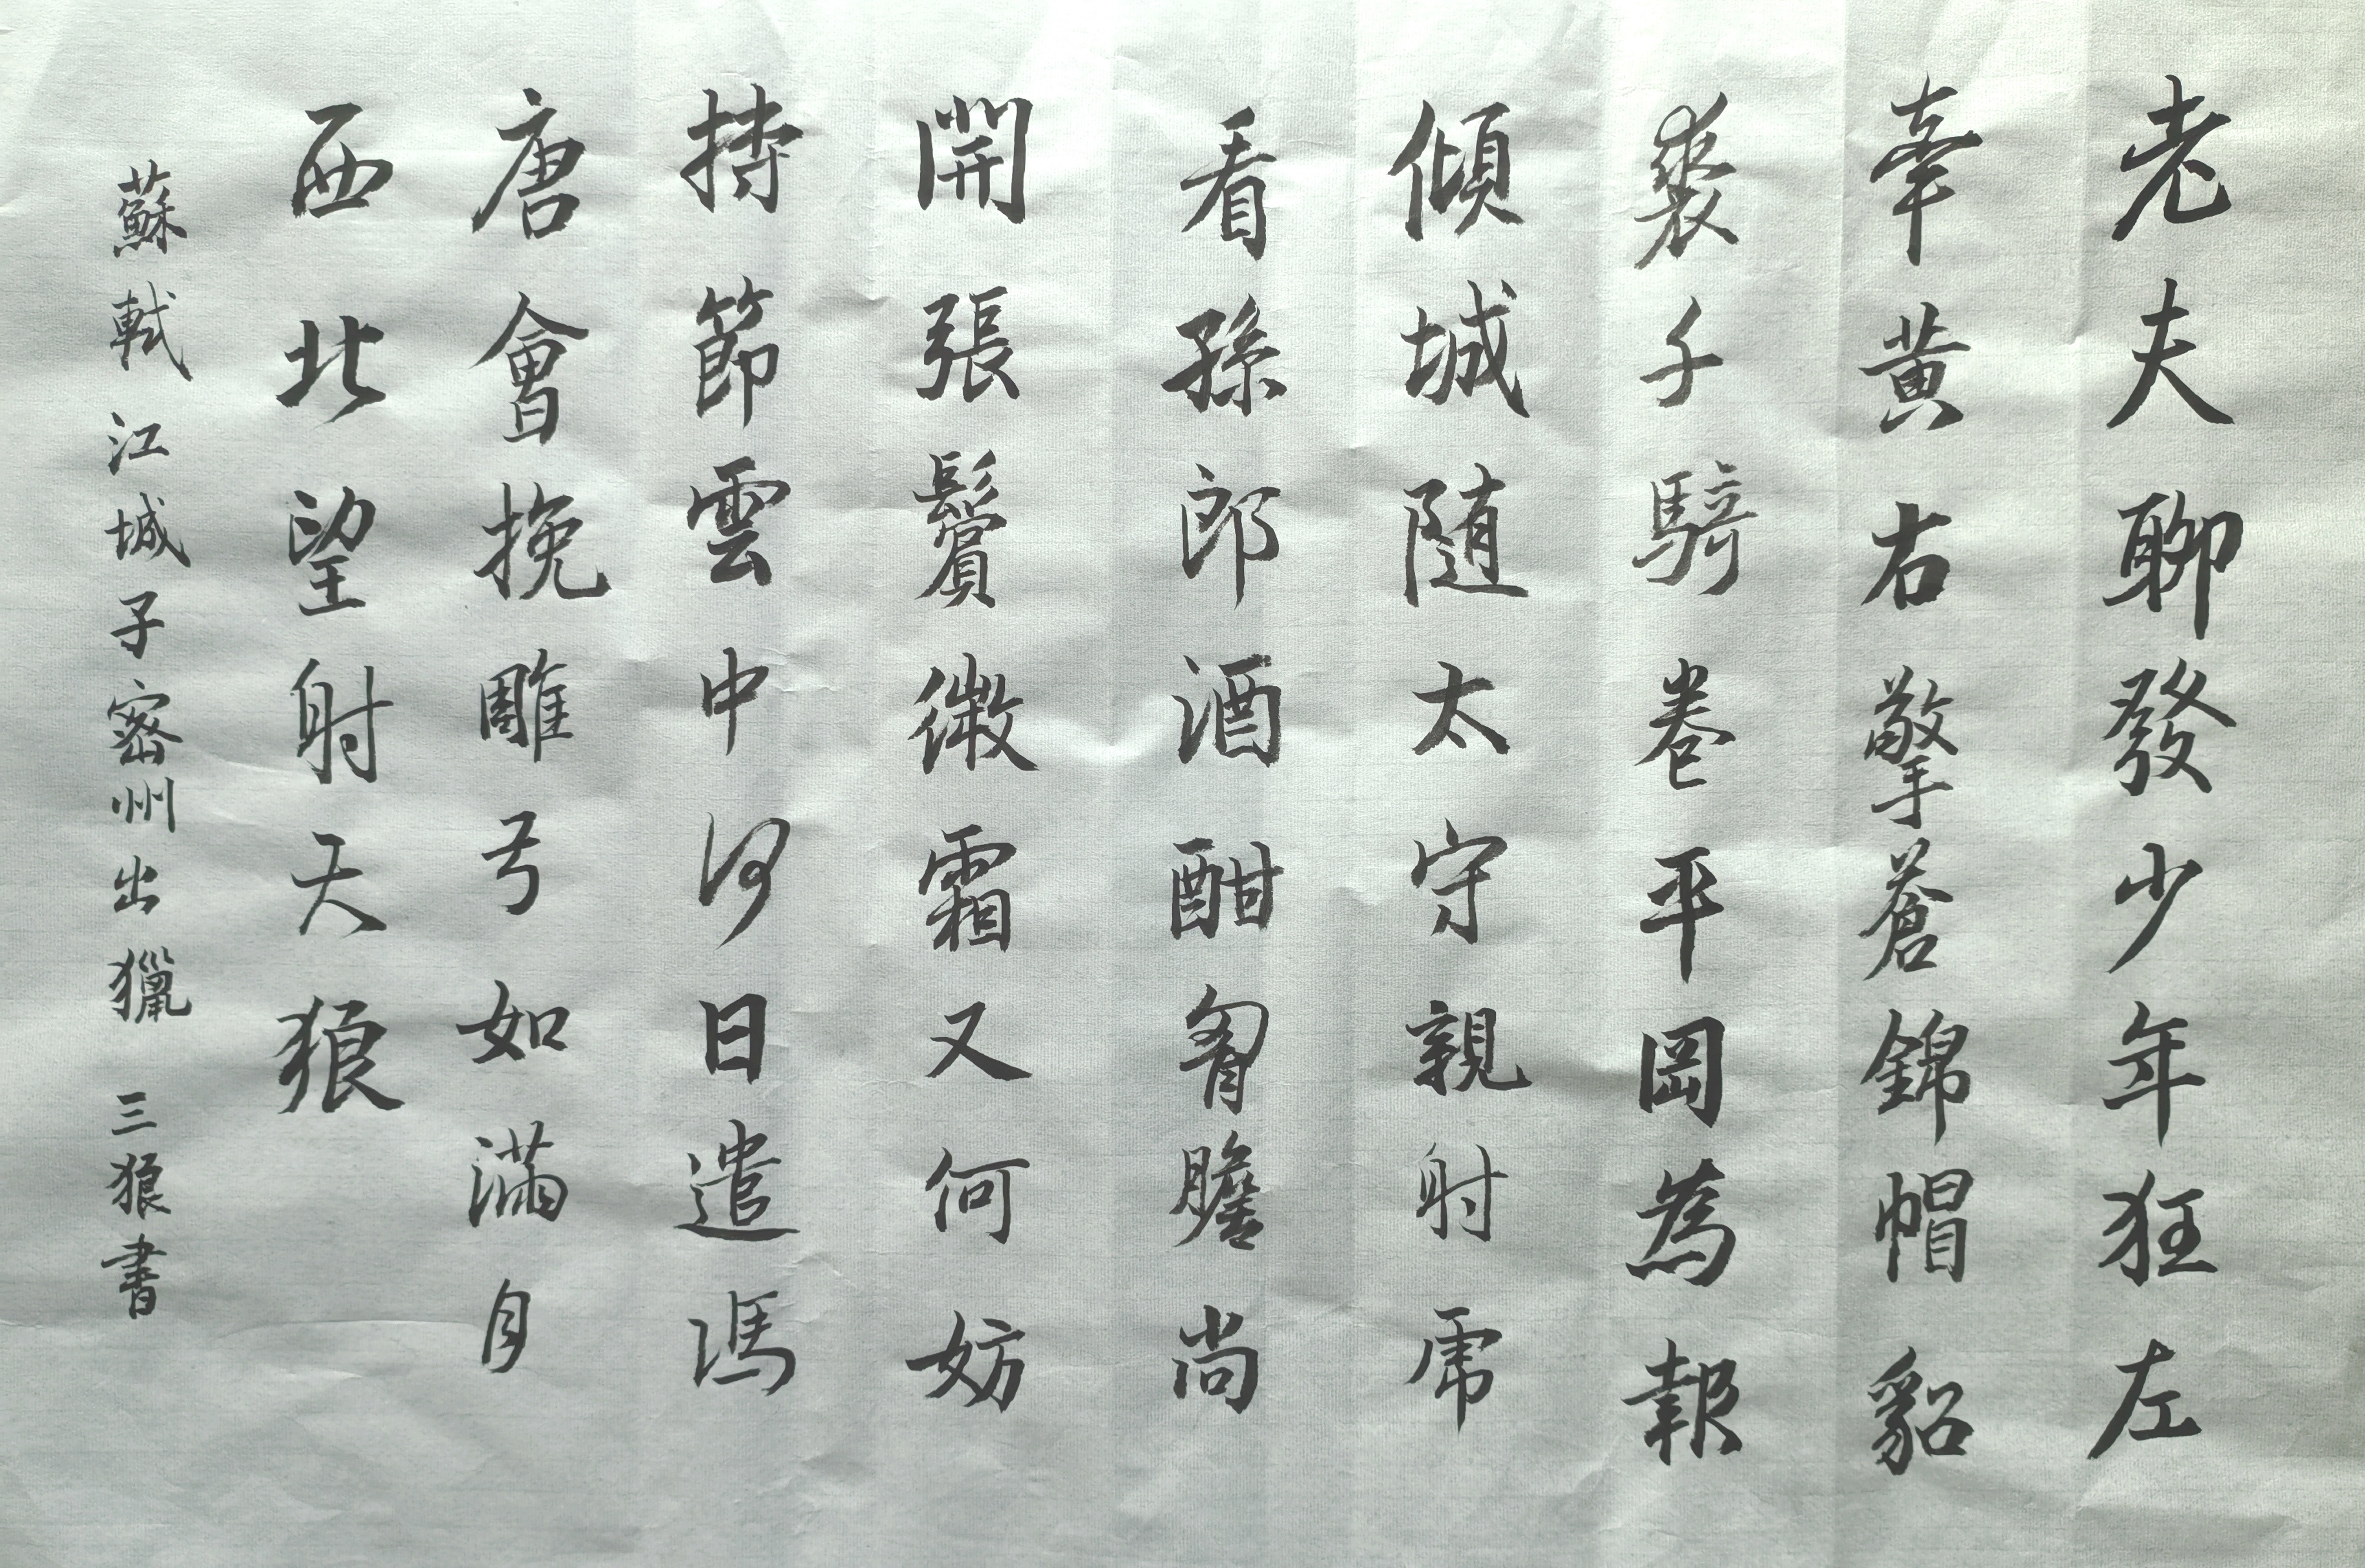 老夫聊發少年狂左
牽黃右擎蒼錦帽貂
裘千騎卷平岡為報
傾城随太守親射虎
看孫郎酒酣胷膽尚
開張鬢微霜又何妨
持節雲中何日遣馮
唐會挽雕弓如滿月
西北望射天狼
蘇軾 江城子密州出獵 三狼書